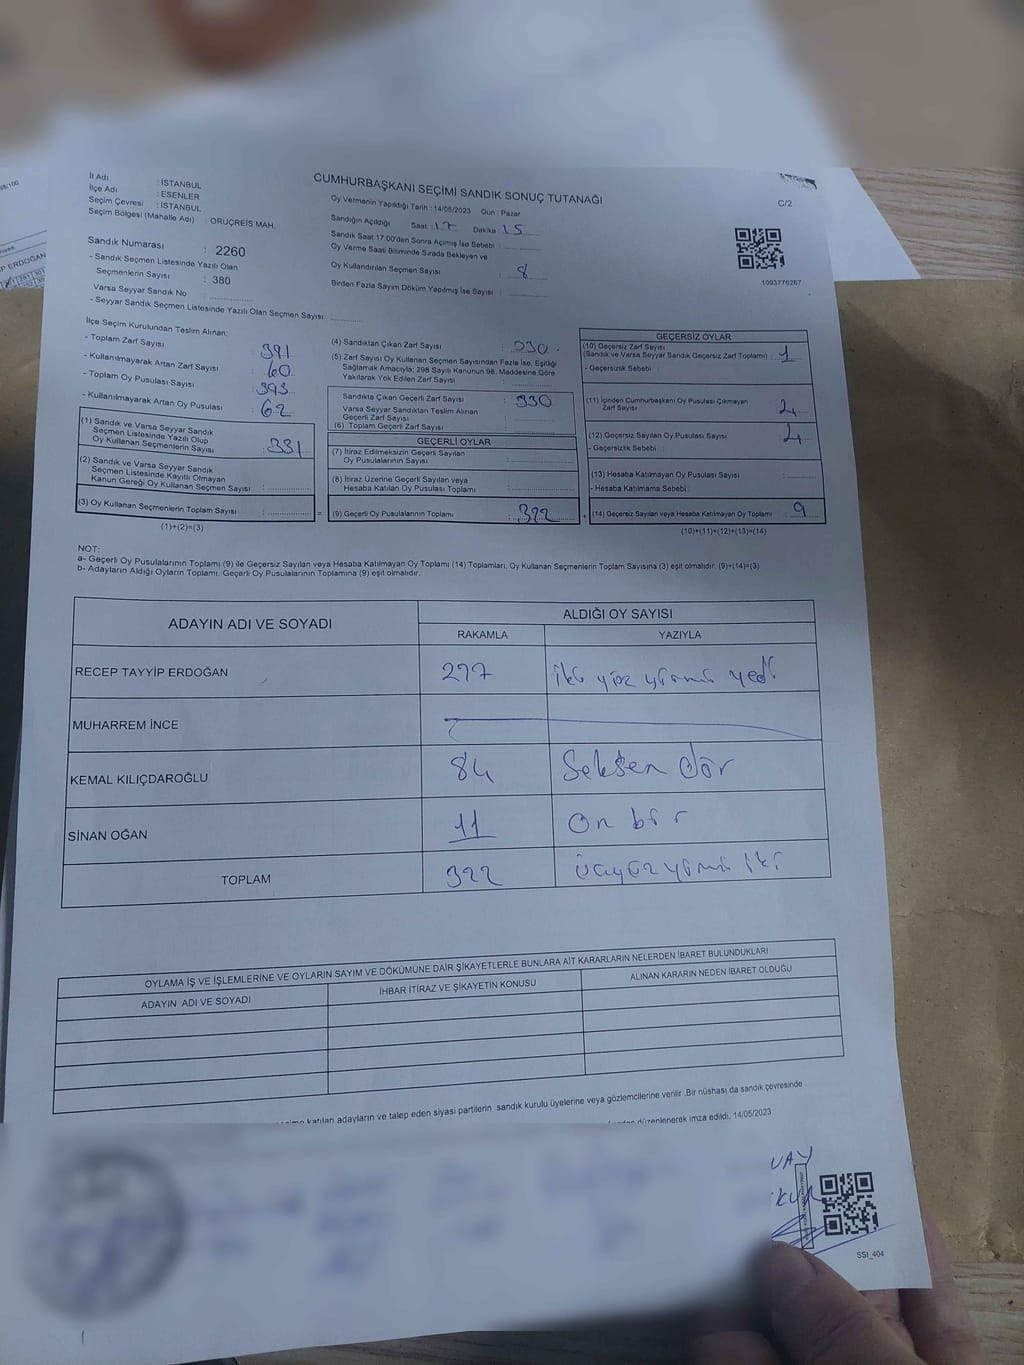 CUMHURBAŞKANI SEÇİMİ SANDIK SONUÇ TUTANAĞI
C/2
İl Adı : İSTANBUL
İlçe Adı : ESENLER
Seçim Çevresi : İSTANBUL
Seçim Bölgesi (Mahalle Adı) : ORUÇREİS MAH.
Sandık Numarası : 2260
- Sandık Seçmen Listesinde Yazılı Olan
Seçmenlerin Sayısı : 380
Varsa Seyyar Sandık No :
- Seyyar Sandık Seçmen Listesinde Yazılı Olan Seçmen Sayısı:
Oy Vermenin Yapıldığı Tarih : 14/05/2023 Gün : Pazar
Sandığın Açıldığı Saat : 17 Dakika : 15
Sandık Saat 17.00'den Sonra Açılmış İse Sebebi :
Oy Verme Saati Bitiminde Sırada Bekleyen ve
Oy Kullandırılan Seçmen Sayısı : 8
Birden Fazla Sayım Döküm Yapılmış İse Sayısı :
1093776267
İlçe Seçim Kurulundan Teslim Alınan:
- Toplam Zarf Sayısı : 391
- Kullanılmayarak Artan Zarf Sayısı : 60
- Toplam Oy Pusulası Sayısı : 393
- Kullanılmayarak Artan Oy Pusulası : 62
(1) Sandık ve Varsa Seyyar Sandık
Seçmen Listesinde Yazılı Olup
Oy Kullanan Seçmenlerin Sayısı : 331
(2) Sandık ve Varsa Seyyar Sandık
Seçmen Listesinde Kayıtlı Olmayan
Kanun Gereği Oy Kullanan Seçmen Sayısı :
(3) Oy Kullanan Seçmenlerin Toplam Sayısı :
(1)+(2)=(3)
=
(4) Sandıktan Çıkan Zarf Sayısı : 330
(5) Zarf Sayısı Oy Kullanan Seçmen Sayısından Fazla İse, Eşitliği
Sağlamak Amacıyla; 298 Sayılı Kanunun 98. Maddesine Göre
Yakılarak Yok Edilen Zarf Sayısı :
Sandıkta Çıkan Geçerli Zarf Sayısı : 330
Varsa Seyyar Sandıktan Teslim Alınan
Geçerli Zarf Sayısı :
(6) Toplam Geçerli Zarf Sayısı :
GEÇERLİ OYLAR
(7) İtiraz Edilmeksizin Geçerli Sayılan
Oy Pusulalarının Sayısı :
(8) İtiraz Üzerine Geçerli Sayılan veya
Hesaba Katılan Oy Pusulası Toplamı :
(9) Geçerli Oy Pusulalarının Toplamı : 322
+
GEÇERSİZ OYLAR
(10) Geçersiz Zarf Sayısı
(Sandık ve Varsa Seyyar Sandık Geçersiz Zarf Toplamı) : 1
- Geçersizlik Sebebi :
(11) İçinden Cumhurbaşkanı Oy Pusulası Çıkmayan
Zarf Sayısı : 4
(12) Geçersiz Sayılan Oy Pusulası Sayısı : 4
- Geçersizlik Sebebi :
(13) Hesaba Katılmayan Oy Pusulası Sayısı :
- Hesaba Katılmama Sebebi :
(14) Geçersiz Sayılan veya Hesaba Katılmayan Oy Toplamı : 9
(10)+(11)+(12)+(13)=(14)
NOT:
a- Geçerli Oy Pusulalarının Toplamı (9) ile Geçersiz Sayılan veya Hesaba Katılmayan Oy Toplamı (14) Toplamları, Oy Kullanan Seçmenlerin Toplam Sayısına (3) eşit olmalıdır. (9)+(14)=(3)
b- Adayların Aldığı Oyların Toplamı, Geçerli Oy Pusulalarının Toplamına (9) eşit olmalıdır.
ADAYIN ADI VE SOYADI ALDIĞI OY SAYISI
RAKAMLA YAZIYLA
RECEP TAYYİP ERDOĞAN 227 iki yüz yirmi yedi
MUHARREM İNCE
KEMAL KILIÇDAROĞLU 84 Seksen dör
SİNAN OĞAN 11 On bir
TOPLAM 322 üçyüz yirmi iki
OYLAMA İŞ VE İŞLEMLERİNE VE OYLARIN SAYIM VE DÖKÜMÜNE DAİR ŞİKAYETLERLE BUNLARA AİT KARARLARIN NELERDEN İBARET BULUNDUKLARI
ADAYIN ADI VE SOYADI İHBAR İTİRAZ VE ŞİKAYETİN KONUSU ALINAN KARARIN NEDEN İBARET OLDUĞU
katılan adayların ve talep eden siyasi partilerin sandık kurulu üyelerine veya gözlemcilerine verilir. Bir nüshası da sandık çevresinde
düzenlenerek imza edildi. 14/05/2023
SSI_404